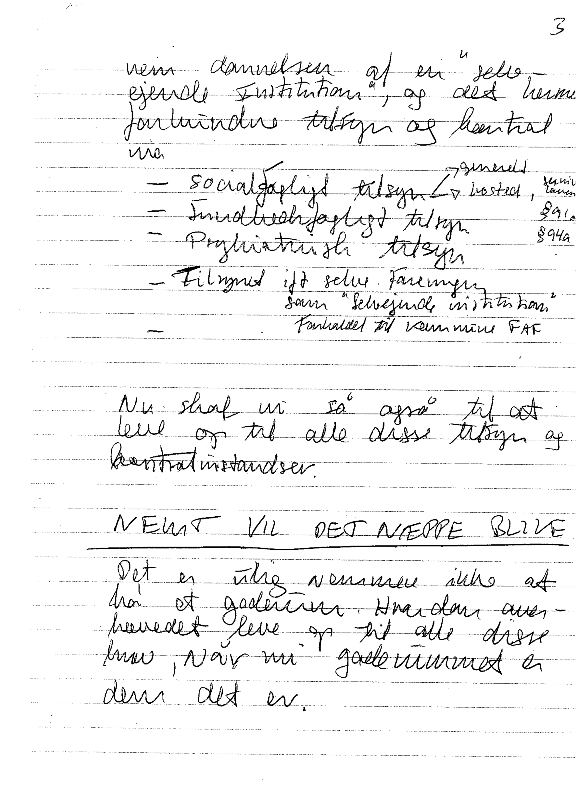 3
nem dannelsen af en "selv-
ejende institution", og det herme
forhindre tilsyn og kontrol
→ generelt
— Socialfagligt tilsyn → bosted,
— Sundhedsfagligt tilsyn §91a
— Psykiatrisk tilsyn §94a
— Tilsynet ift selve foreningen
som "Selvejende institution"
Forholdet til kommune FAF
—
Nu skal vi så også til at
leve op til alle disse tilsyn og
kontrolinstandser.
NEMT VIL DET NÆPPE BLIVE
Det er nemmere ikke at
ha' et gaderum. Hvordan over-
hovedet leve op til alle disse
krav, når nu gaderummet er
dem det er.